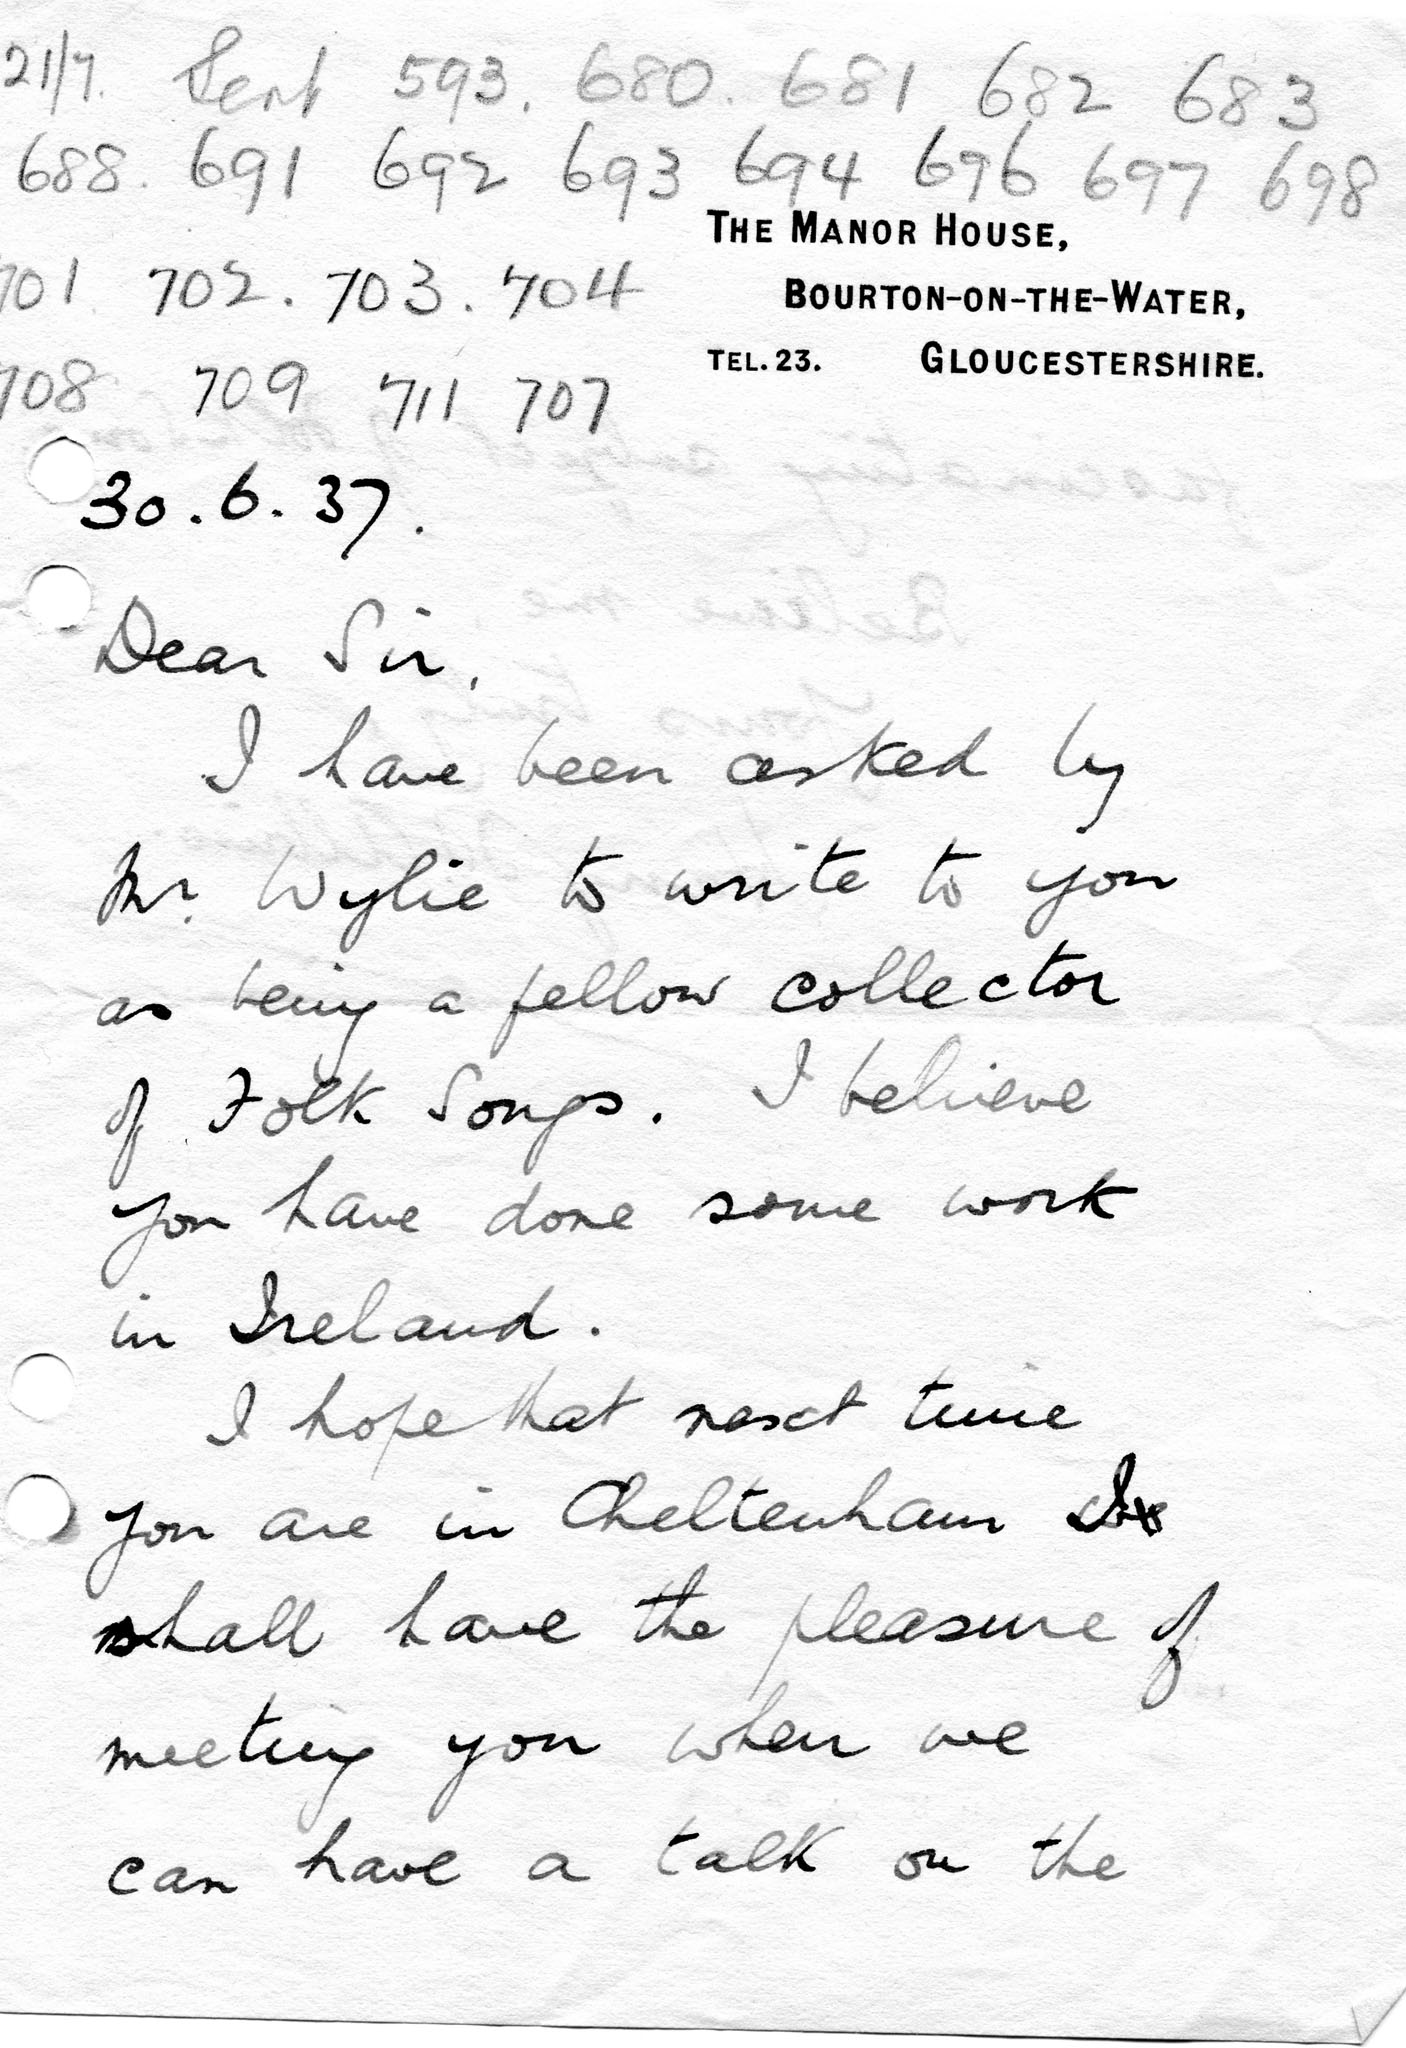 21/7. Sent 593. 680. 681 682 683
688. 691 692 693 694 696 697 698
THE MANOR HOUSE,
701 702. 703. 704
BOURTON-ON-THE-WATER,
TEL. 23. GLOUCESTERSHIRE.
708 709 711 707
30.6.37.
Dear Sir,
I have been asked by
Mr. Wylie to write to you
as being a fellow collector
of Folk Songs. I believe
you have done some work
in Ireland.
I hope that next time
you are in Cheltenham I
shall have the pleasure of
meeting you when we
can have a talk on the